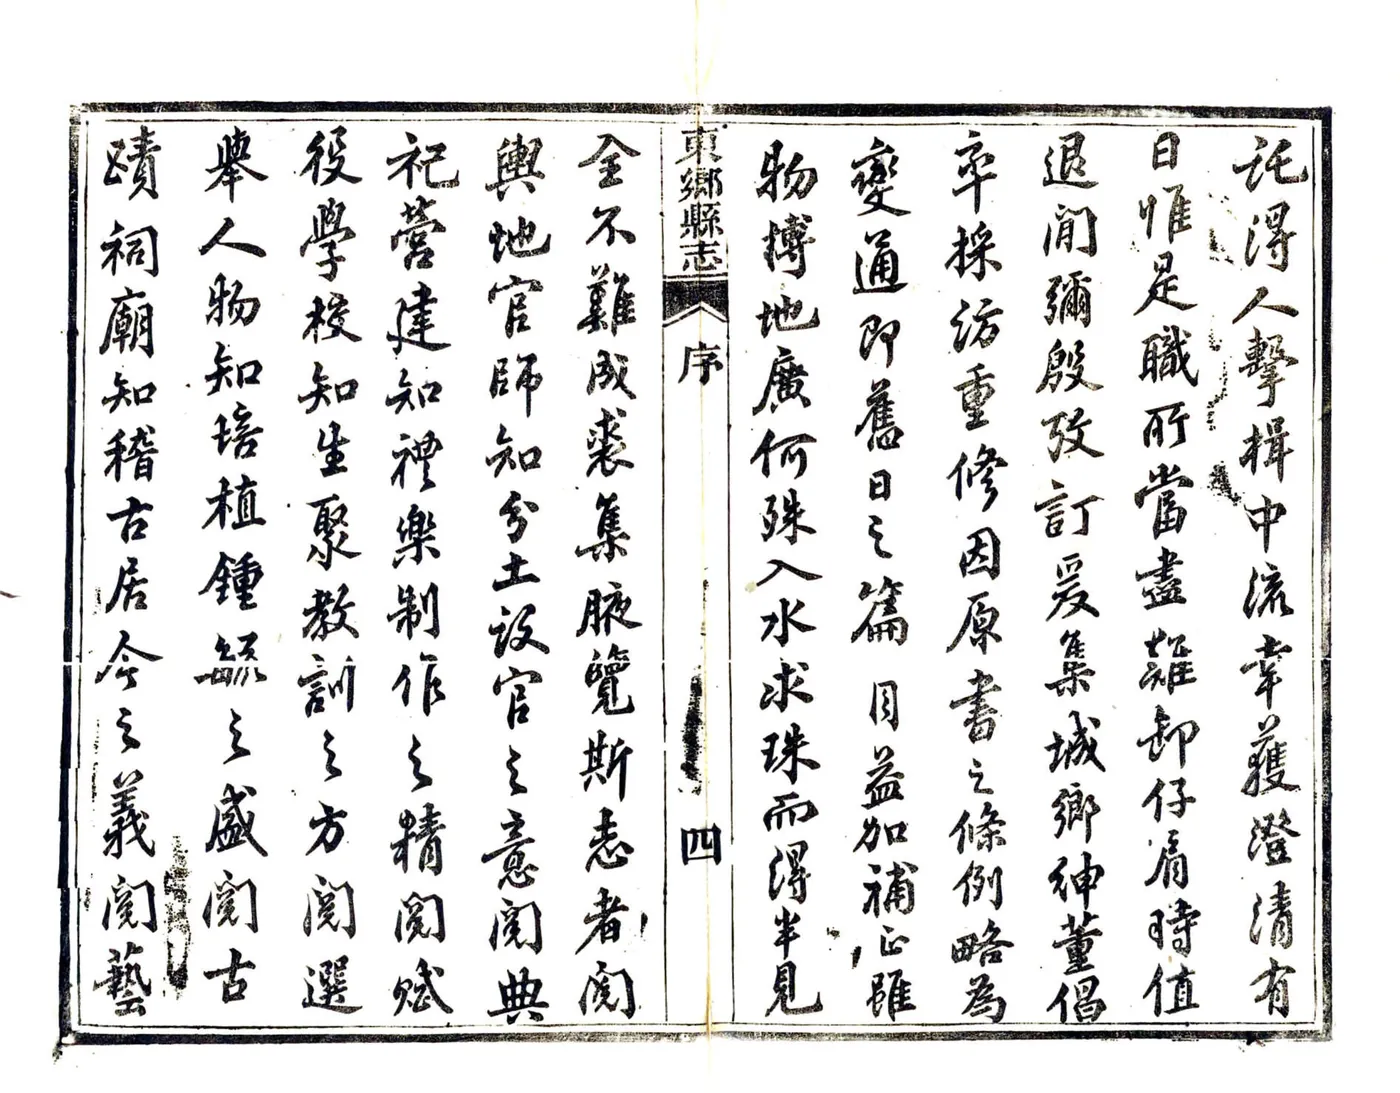 託得人擊楫中流幸獲澄清有
日惟是職所當盡難卸仔肩時值
退閒彌殷攷訂爰集城鄉紳董倡
率採訪重修因原書之條例略為
變通即舊日之篇目益加補正雖
物博地廣何殊入水求珠而得半見
東鄉縣志
序
四
全不難成裘集腋覽斯志者閱
輿地官師知分土設官之意閱典
祀營建知禮樂制作之精閱賦
役學校知生聚教訓之方閱選
舉人物知培植鍾毓之盛閱古
蹟祠廟知稽古居今之義閱藝